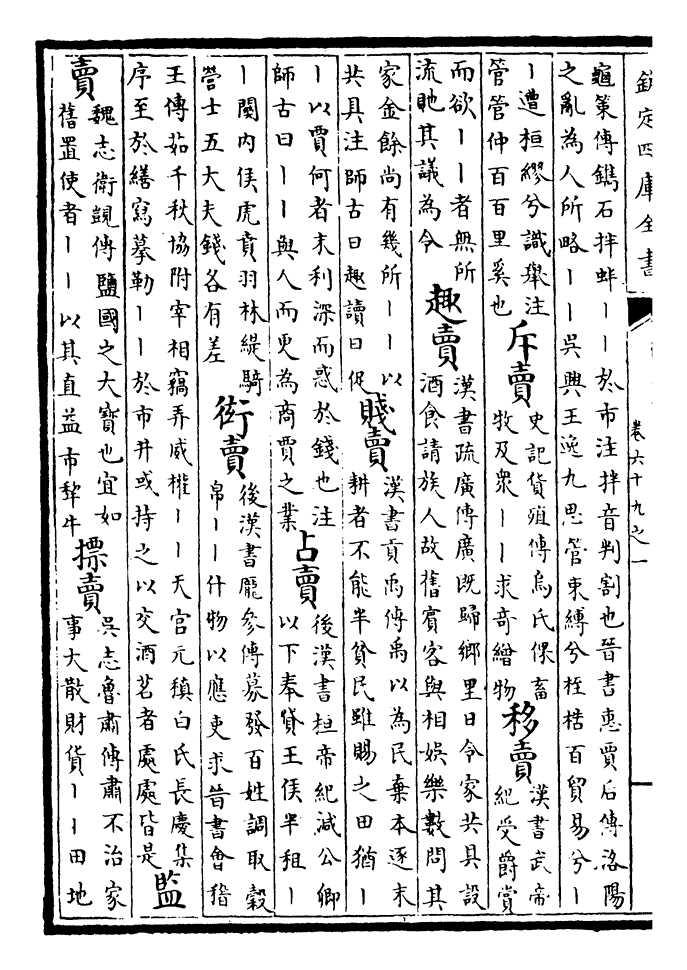 欽定四庫全書
卷六十九之一
龜策傳鐫石拌蚌丨丨於市注拌音判割也晉書惠賈后傳洛陽
之亂為人所略丨丨吳興王逸九思管束縛兮桎梏百貿易兮丨
丨遭桓繆兮識舉注
管管仲百百里奚也
斥賣
史記貨殖傳烏氏倮畜
牧及衆丨丨求奇繒物
移賣
漢書武帝
紀受爵賞
而欲丨丨者無所
流貤其議為令
趣賣
漢書疏廣傳廣既歸鄉里日令家共具設
酒食請族人故舊賓客與相娛樂數問其
家金餘尚有幾所丨丨以
共具注師古曰趣讀曰促
賤賣
漢書貢禹傳禹以為民棄本逐末
耕者不能半貧民雖賜之田猶丨
丨以賈何者末利深而惑於錢也注
師古曰丨丨與人而更為商賈之業
占賣
後漢書桓帝紀減公卿
以下奉貸王侯半租丨
丨關內侯虎賁羽林緹騎
營士五大夫錢各有差
衒賣
後漢書龐參傳募發百姓調取穀
帛丨丨什物以應吏求晉書會稽
王傳茹千秋協附宰相竊弄威權丨丨天官元稹白氏長慶集
序至於繕寫摹勒丨丨於市井或持之以交酒茗者處處皆是
監
賣
魏志衛覬傳鹽國之大寶也宜如
舊置使者丨丨以其直益市犂牛
摽賣
吳志魯肅傳肅不治家
事大散財貨丨丨田地